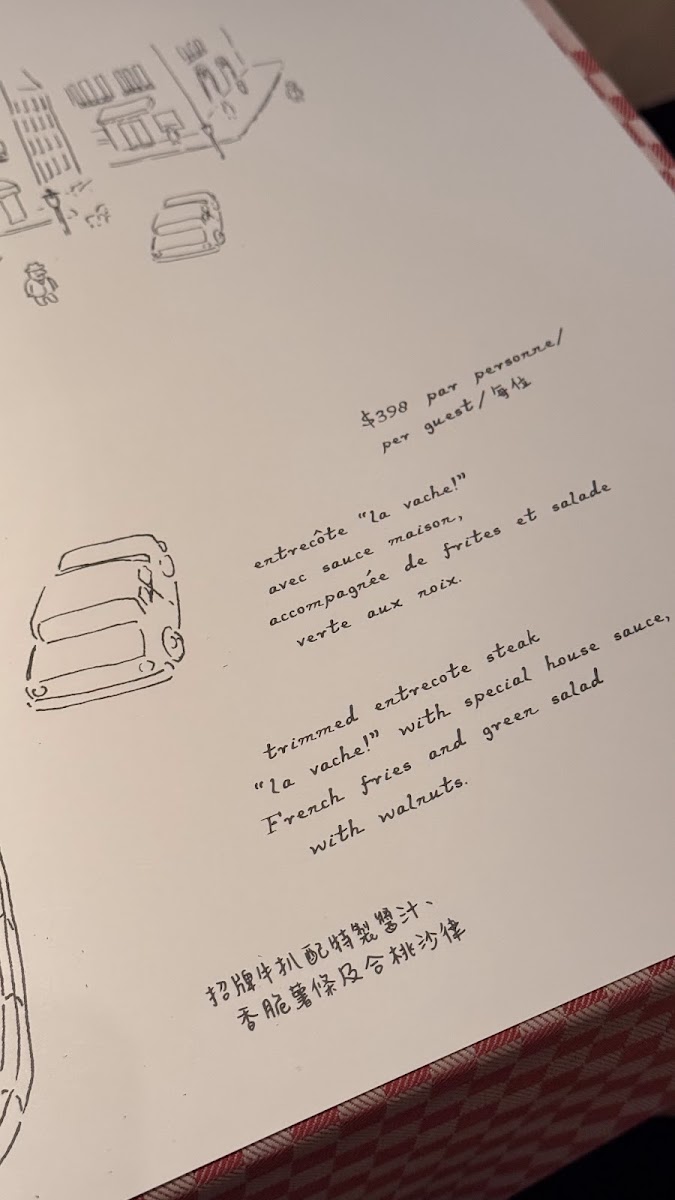 $398 par personne/
per guest/每位
entrecôte "la vache!"
avec sauce maison,
accompagnée de frites et salade
verte aux noix.
trimmed entrecote steak
"la vache!" with special house sauce,
French fries and green salad
with walnuts.
招牌牛扒配特製醬汁、
香脆薯條及合桃沙律